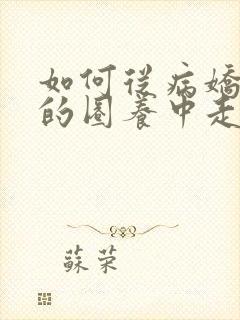 如何從病嬌
的圈養中走
蘇榮